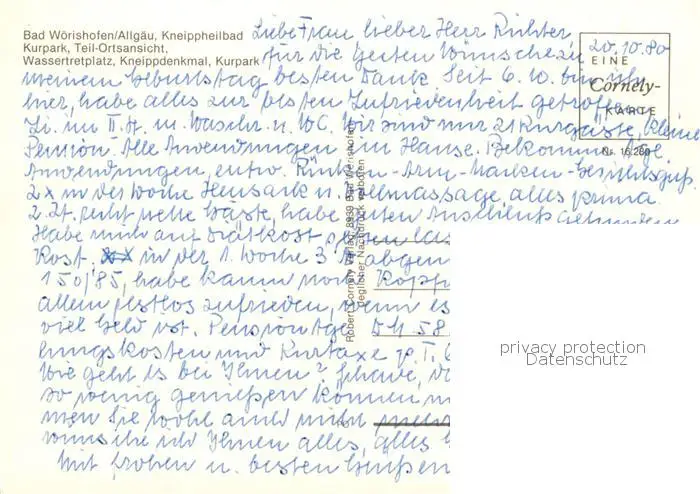 Bad Wörishofen/Allgäu, Kneippheilbad
Kurpark, Teil-Ortsansicht,
Wassertretplatz, Kneippdenkmal, Kurpark
20.10.80
EINE
Cornely-
KARTE
Nr. 16 280
Liebe Frau, lieber Herr Richter,
für die guten Wünsche zu
meinem Geburtstag besten Dank. Seit 6.10. bin ich
hier, habe alles zur besten Zufriedenheit getroffen.
Zi. im II. St. m. Waschr. u. WC. Wir sind nur 21 Kurgäste, kleine
Pension. Alle Anwendungen im Hause. Bekomme tgl.
Anwendungen, entw. Rücken- Arm- Nacken- Gesichtsguß
2x in der Woche Heusack u. Vollmassage, alles prima.
Z.Zt. recht nette Gäste, habe guten Anschluß gefunden
Habe mich auf Diätkost
Kost. in der 1. Woche 3
150/85, habe kaum noch Kopf
allem restlos zufrieden, wenn es
viel Geld ist. Pension tgl. 54 58
und Kurtaxe p. T.
Wie geht es bei Ihnen? Schade, da
so wenig genießen können
men Sie wohl auch nicht mehr
wünsche ich Ihnen alles, alles
Mit frohen u. besten Grüßen
Robert Cornely Verlag, 8939 Bad Wörishofen
Jeglicher Nachdruck verboten
privacy protection
Datenschutz